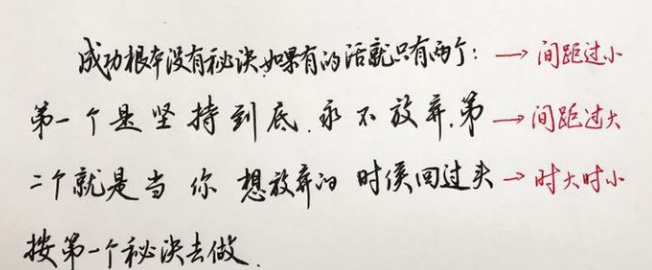 成功根本没有秘决,如果有的话就只有两个: → 间距过小
第一个是坚持到底.永不放弃.第 → 间距过大
二个就是当你想放弃的时候回过头 → 时大时小
按第一个秘决去做.